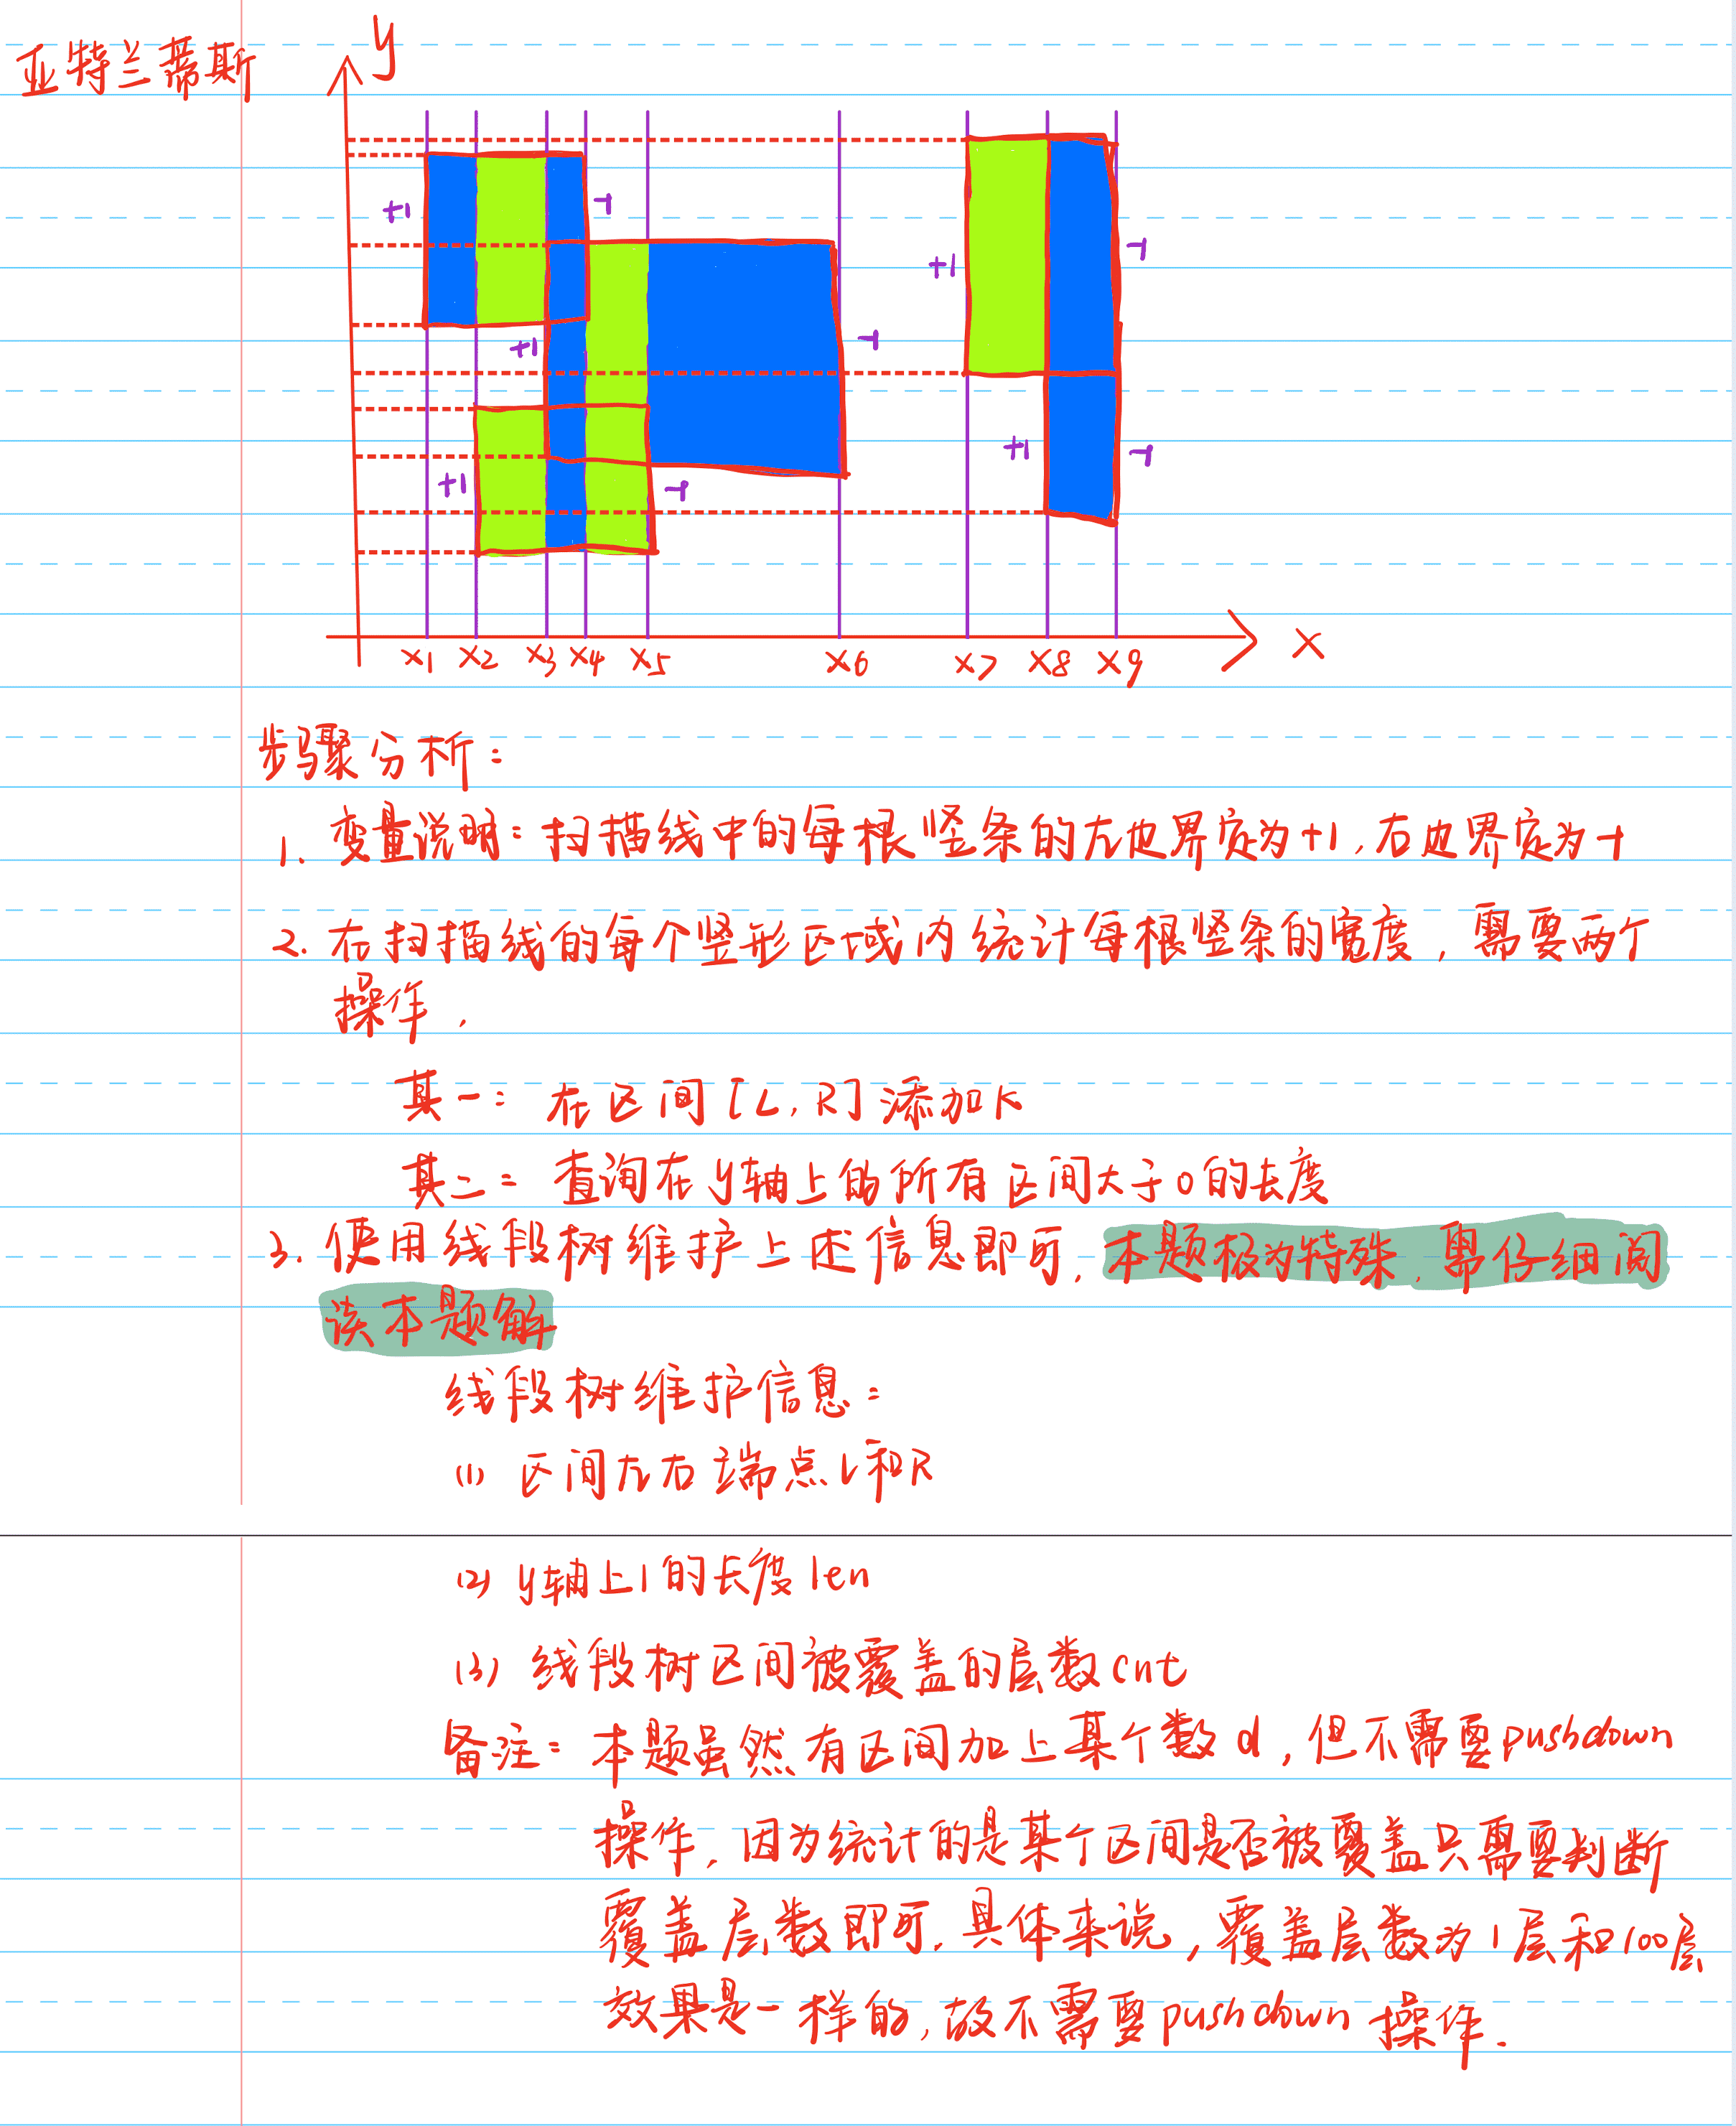 亚特兰蒂斯
y
+1 -1 +1 -1
+1 -1
+1 -1
+1 -1 +1 -1
x1 x2 x3 x4 x5 x6 x7 x8 x9 x
步骤分析:
1. 变量说明:扫描线中的每根竖条的左边界定为+1,右边界定为-1
2. 在扫描线的每个竖形区域内统计每根竖条的宽度,需要两个
操作,
其一:在区间[L,R]添加K
其二:查询在y轴上的所有区间大于0的长度
3. 使用线段树维护上述信息即可,本题极为特殊,需仔细阅
读本题解
线段树维护信息:
(1) 区间左右端点L和R
(2) y轴上1的长度len
(3) 线段树区间被覆盖的层数cnt
备注:本题虽然有区间加上某个数d,但不需要pushdown
操作,因为统计的是某个区间是否被覆盖只需要判断
覆盖层数即可,具体来说,覆盖层数为1层和100层
效果是一样的,故不需要pushdown 操作.